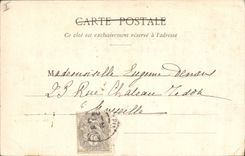 CARTE POSTALE
Ce côté est exclusivement réservé à l'adresse
Mademoiselle Eugenie
23 Rue Château Redon
Marseille